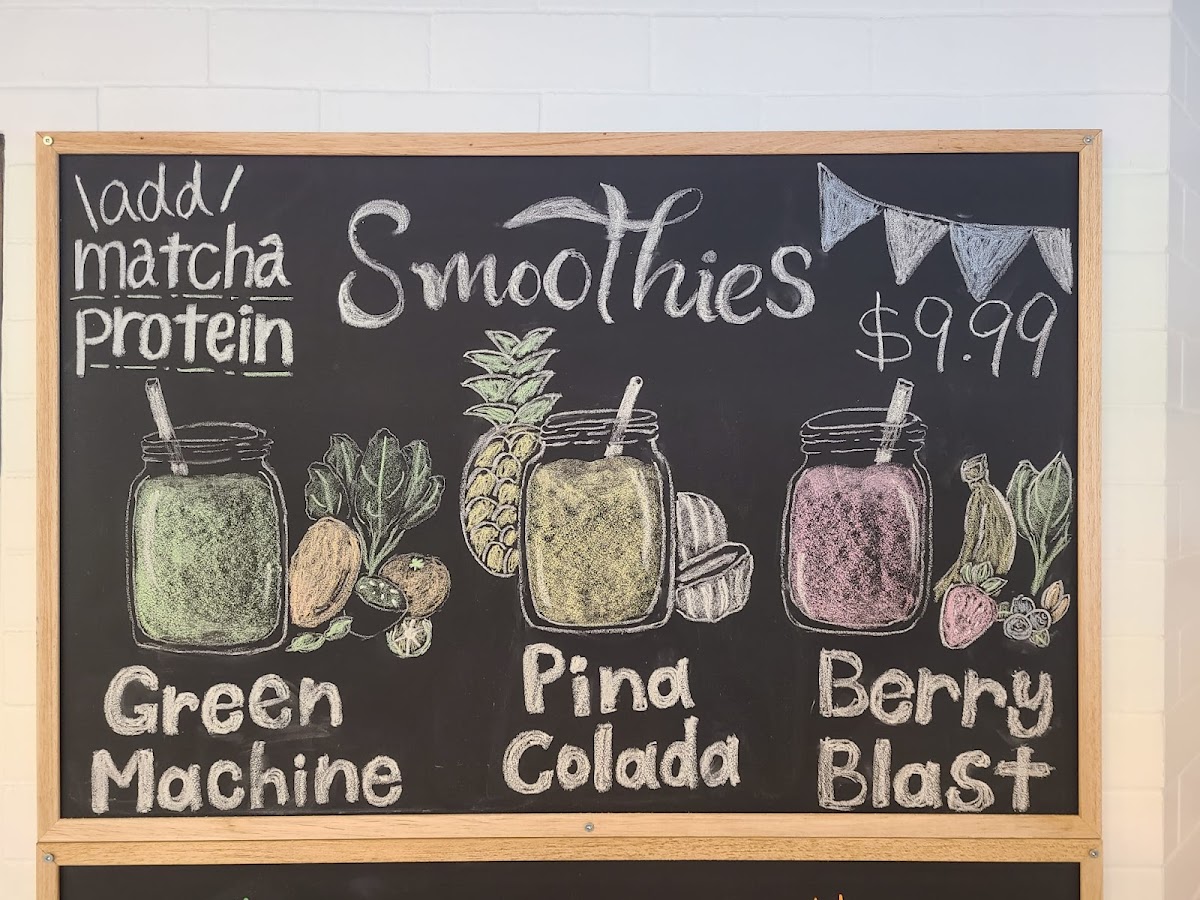 \add/
matcha
protein
Smoothies
$9.99
Green
Machine
Pina
Colada
Berry
Blast